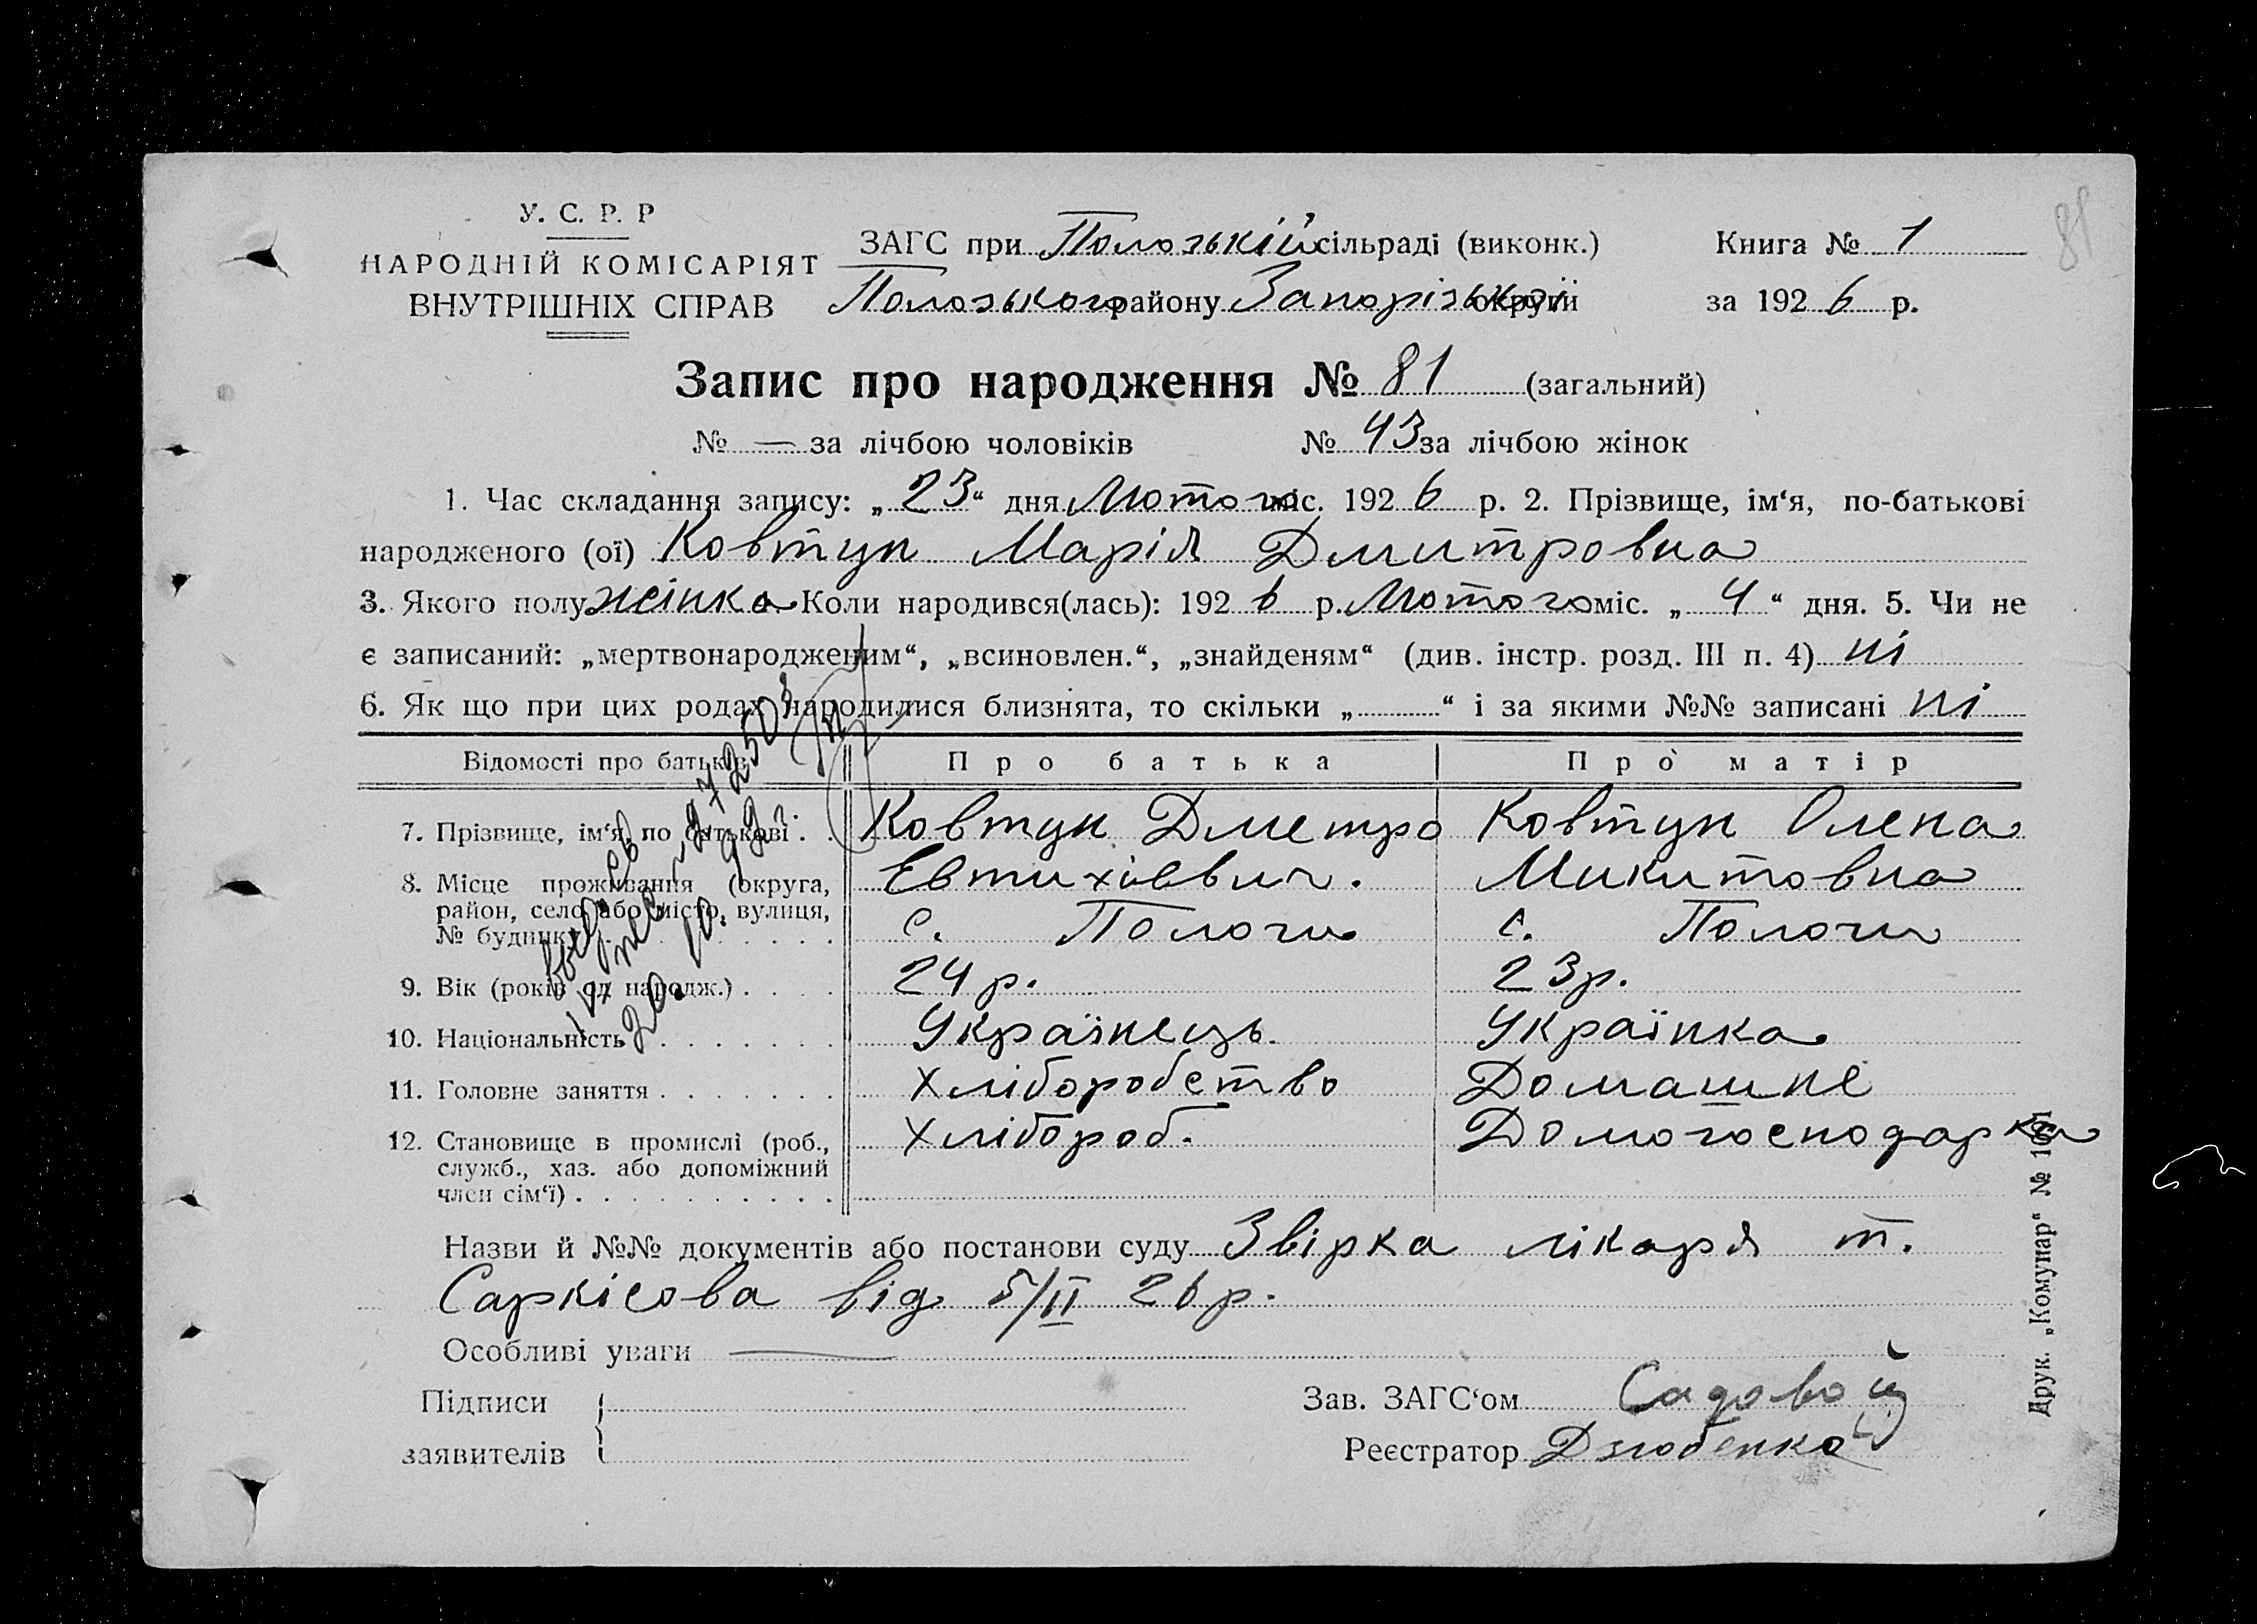 У. С. Р. Р
НАРОДНІЙ КОМІСАРІЯТ
ВНУТРІШНІХ СПРАВ
ЗАГС при Полозькій сільраді (виконк.) Книга № 1
Полозького району Запорізької округи за 1926 р.
81
Запис про народження № 81 (загальний)
№ — за лічбою чоловіків № 43 за лічбою жінок
1. Час складання запису: „23“ дня Лютого міс. 1926 р. 2. Прізвище, ім‘я, по-батькові
народженого (ої) Ковтун Марія Дмитровна
3. Якого полу жінка Коли народився(лась): 1926 р. Лютого міс. „4“ дня. 5. Чи не
є записаний: „мертвонародженим“, „всиновлен.“, „знайденям“ (див. інстр. розд. III п. 4) ні
6. Як що при цих родах народилися близнята, то скільки „ “ і за якими №№ записані ні
Відомості про батьків Про батька Про матір
7. Прізвище, ім‘я, по батькові . . Ковтун Дметро Ковтун Олена
Евтихіевич. Микитовна
8. Місце проживання (округа,
район, село або місто, вулиця,
№ будинку) с. Пологи с. Пологи
9. Вік (років од народж.) 24 р. 23 р.
10. Національність Українець. Українка
11. Головне заняття Хліборобство Домашне
12. Становище в промислі (роб.,
служб., хаз. або допоміжний
член сім‘ї) Хлібороб. Домогосподарка
Назви й №№ документів або постанови суду Звірка лікаря т.
Саркісова від 5/II 26 р.
Особливі уваги —
Підписи
заявителів
Зав. ЗАГС‘ом Садовой
Реєстратор Дзюбенко
Друк. „Комунар“ №